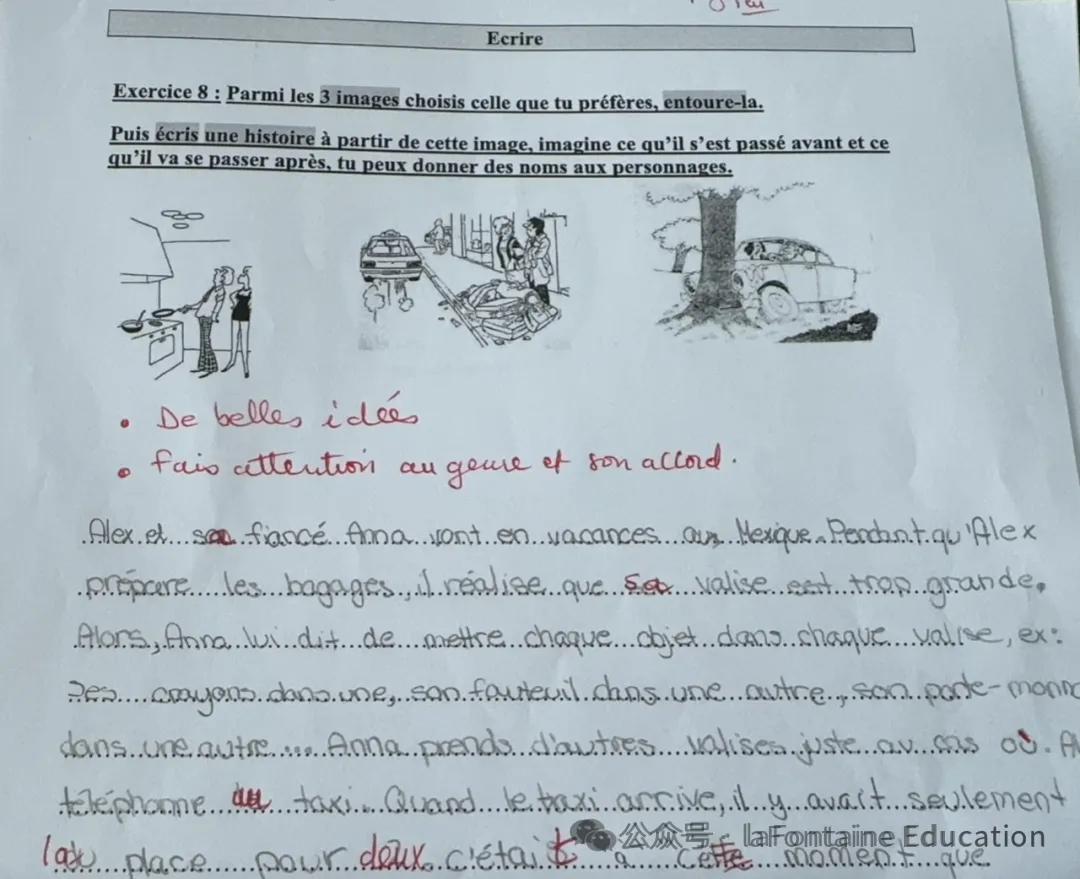 Ecrire
Exercice 8 : Parmi les 3 images choisis celle que tu préfères, entoure-la.
Puis écris une histoire à partir de cette image, imagine ce qu'il s'est passé avant et ce
qu'il va se passer après, tu peux donner des noms aux personnages.
• De belles idées
• Fais attention au genre et son accord.
Alex et sa fiancé Anna vont en vacances au Mexique. Pendant qu'Alex
prépare les bagages, il réalise que sa valise est trop grande.
Alors, Anna lui dit de mettre chaque objet dans chaque valise, ex:
ses crayons dans une, son fauteuil dans une autre, son porte-monn
dans une autre.... Anna prends d'autres valises juste au cas où. A
téléphonne au taxi. Quand le taxi arrive, il y avait seulement
la place pour deux c'était à cette moment que
公众号 · laFontaine Education